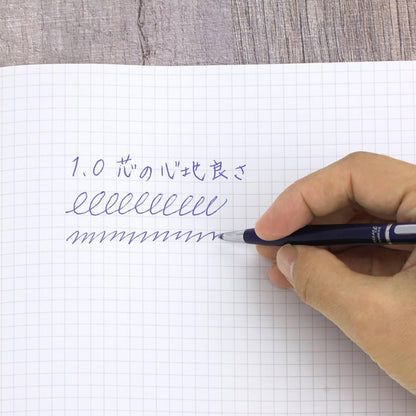 1.0 芯の心地良さ